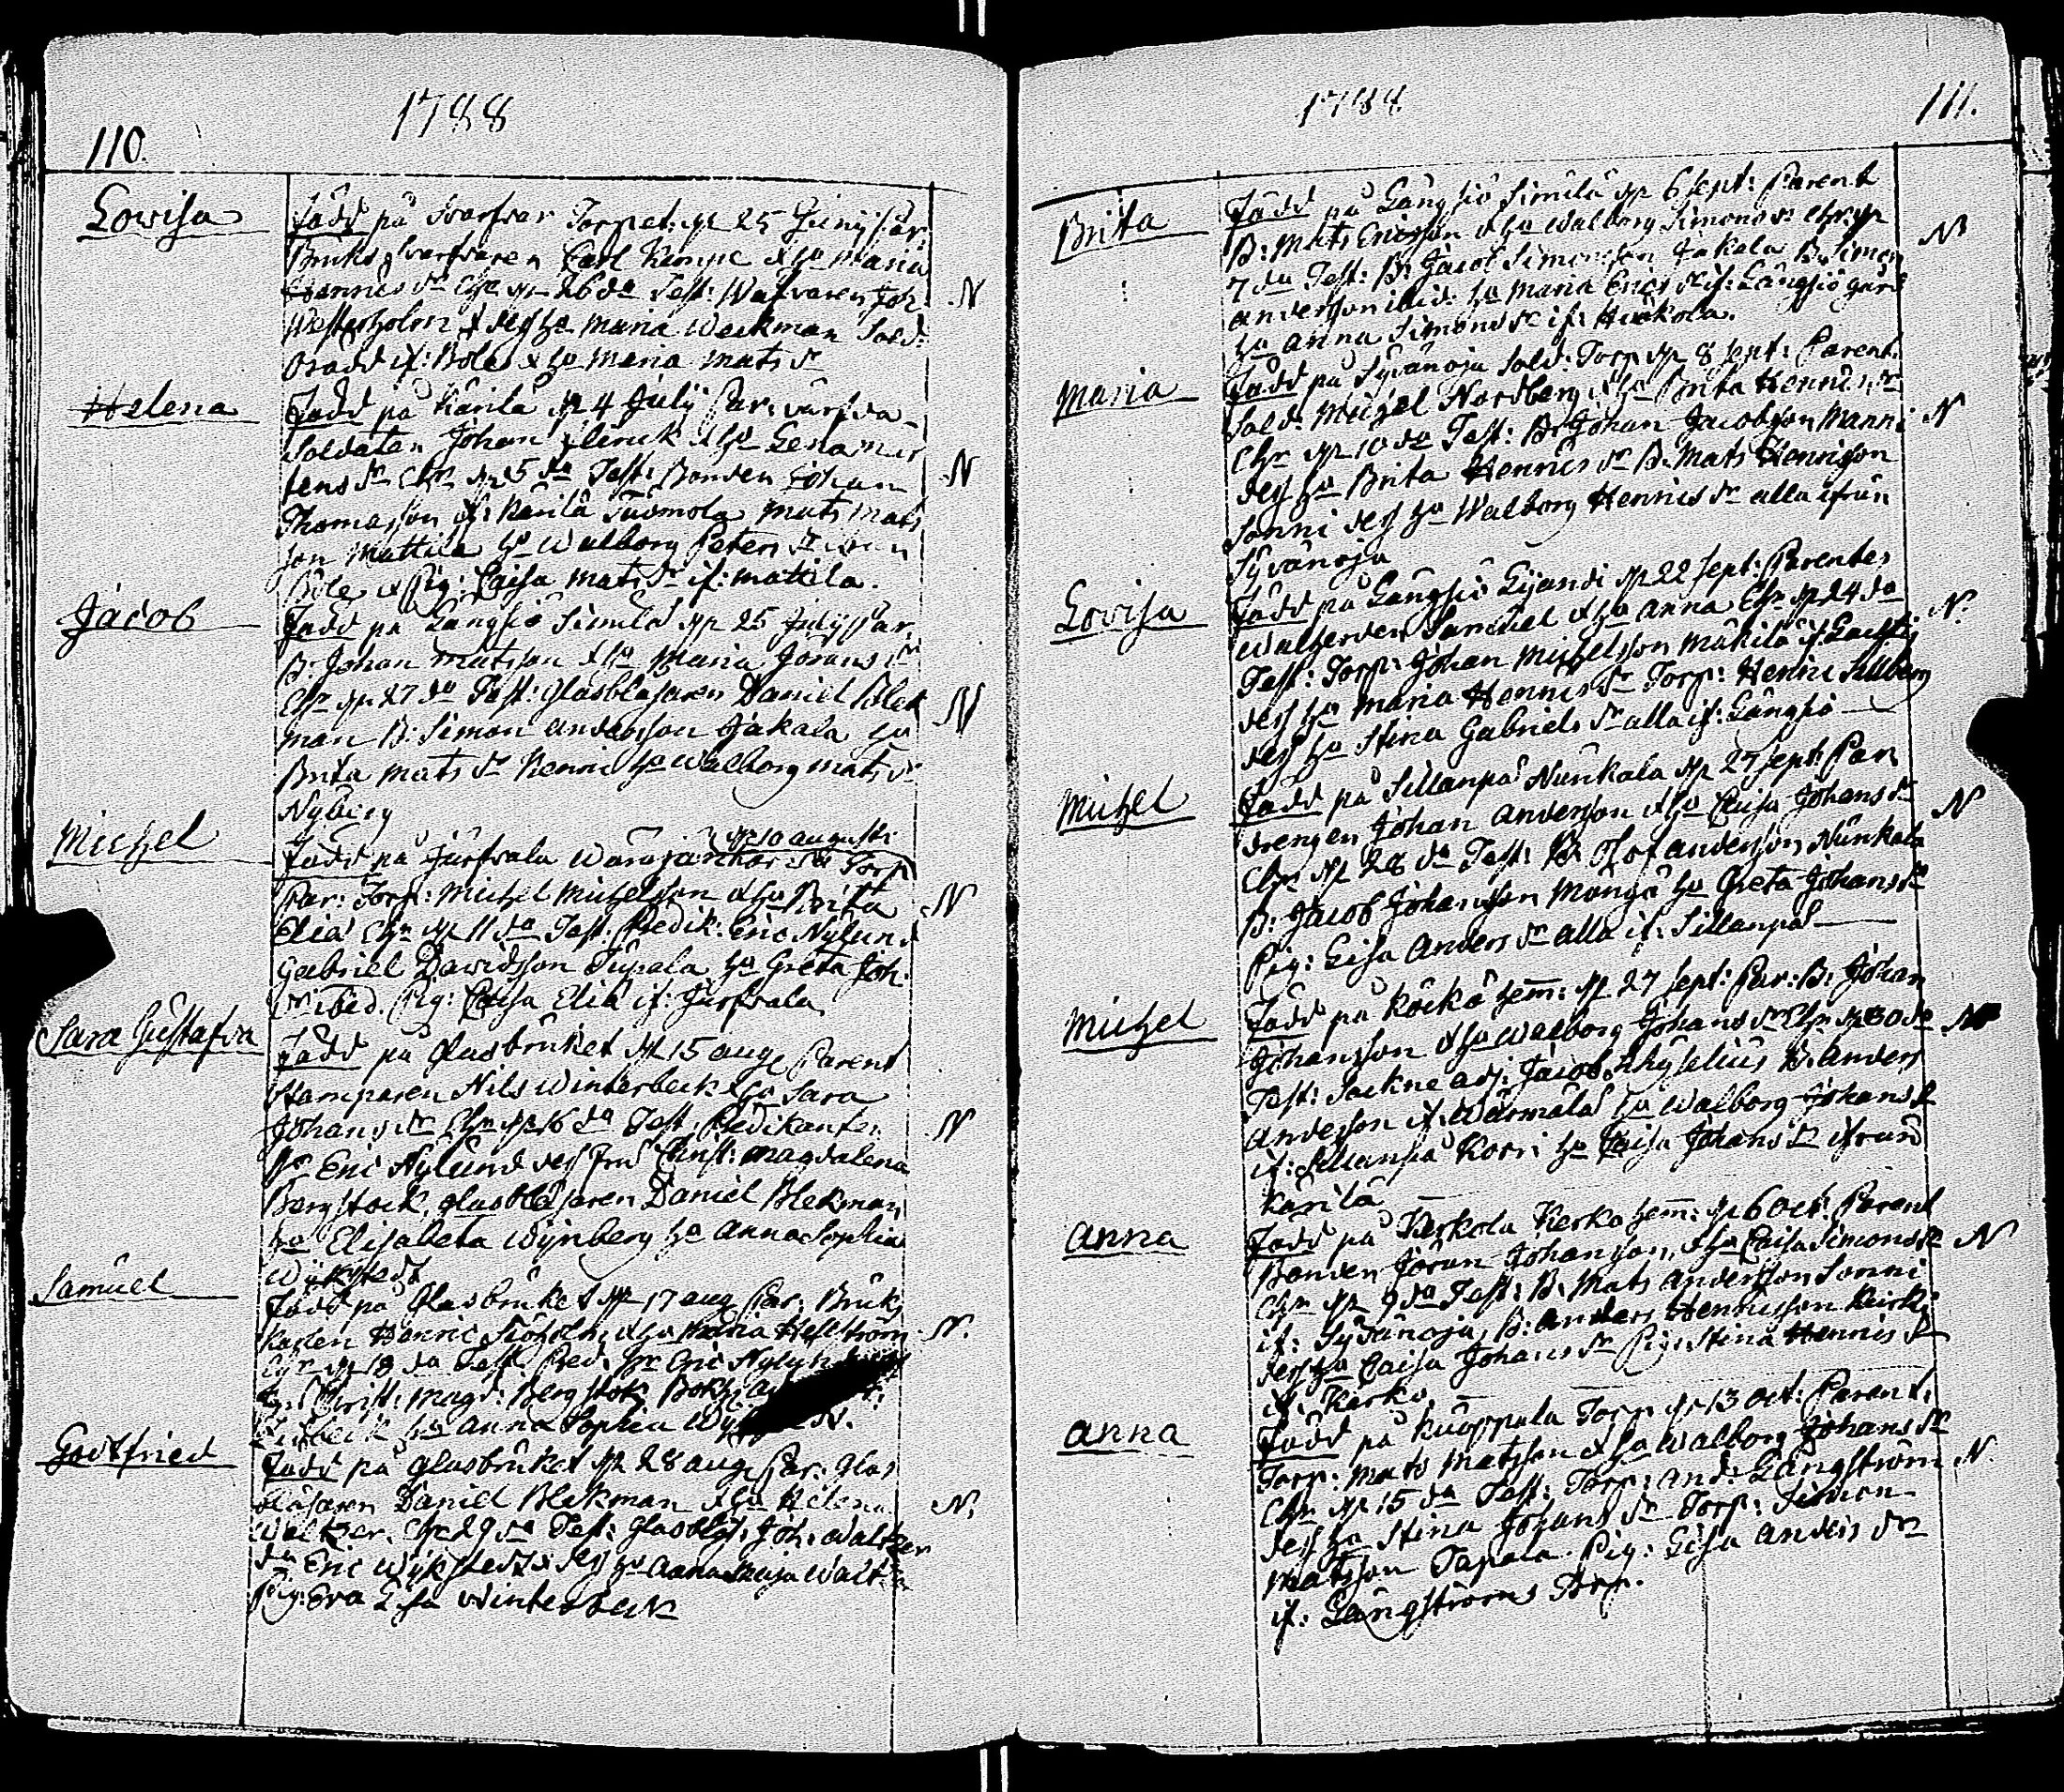 1788
110.
Lowisa
Född på Svarfvar Torpet: d 25 Junij Par:
Bruks svarfvaren Carl Kempe & hu Maria
Henrics dr Chr. d 26 do Test: Wäfvaren Joh:
Westerholm & des hu Maria Weckman Sold:
Bradd if: Böle & hu Maria Mats dr
N
Helena
Född på Kärilä d 4 July Par: värfva
Soldaten Johan & hu Lena Mår
tens dr Chr. d 5 do Test: Bonden Johan
Thomasson if: Kärilä Tuomola Mats Mats
son Mattila hu Walborg Peters dr ifrån
Böle & Pig: Caisa Mats dr if: Mattila.
N
Jacob
Född på Långsjö Simila d 25 July Par.
B: Johan Matsson & hu Maria Jörans dr
Chr. d 27 do Test: Glasblåsaren Daniel Blek
man B: Simon Andersson Jakala hu
Brita Mats dr Henri hu Walborg Mats dr
Nyberg
N
Michel
d 10 augusti
Född på Jurfvala Torp
Par: Torp: Michel Michelsson & hu Brita
Elia Chr. d 11 do Test: Predik: Eric Nylund
Gabriel Davidsson Tupala hu Greta Joh:
dr ibed. Pig: Caisa Elia if: Jurfvala
N
Sara Gustafva
Född på Glasbruket d 15 aug Parent
Stamparen Nils Winterbeck & hu Sara
Johans dr Chr. d 16 do Test: Predikanten
Hr Eric Nylund des fru Christ: Magdalena
Bergstock, glasblåsaren Daniel Blekman
hu Elisabeta Wynberg hu Anna Sophia
Wykstedt
N
Samuel
Född på Glasbruket d 17 aug Par: Bruks
Henric Sjöholm & hu Maria Hellström
Chr. d 18 do Test: Pred: Hr Eric Nylund
fru Christ: Magd: Bergstok Bokh:
hu Anna Sophia
N.
Gottfried
Född på glasbruket d 28 aug Par: Glas
blåsaren Daniel Blekman & hu Helena
Waltzer. Chr. 29 do Test: Glasblås: Joh: Waltzer
do Eric Wykstedt & des hu Anna Maja Walt
Pig: Eva Lisa Winterbeck
N.
1788
111.
Brita
Född på Långsjö Similä d 6 Sept: Parent
B: Mats Ericsson & hu Walborg Simons dr Chr. d
7 do Test: B: Jacob Simonsson Jakala B. Simon
Andersson ibid: hu Maria Erics dr if: Långsjö gård
hu Anna Simons dr if: Huikola.
N
Maria
Född på Syvänoja Sold: Torp d 8 Sept: Parent.
Sold: Michel Nordberg & hu Brita Henrics dr
Chr. d 10 do Test: B: Johan Jacobsson Manni
des hu Brita Henrics dr B. Mats Henricsson
Sonni des hu Walborg Henrics dr alla ifrån
Syvänoja
N
Lovisa
Född på Långsjö Lijandi d 22 Sept: Parentes
Samuel & hu Anna Chr. d 24 do
Test: Torp: Johan Michelsson Mäkilä if:
des hu Maria Henrics dr Torp: Henric Sillberg
des hu Stina Gabriels dr alla if: Långsjö
N.
Michel
Född på Sillanpä Nunkala d 27 Sept: Par
drengen Johan Andersson & hu Caisa Johans dr
Chr. d 28 do Test: B. Olof Andersson Nunkala
B: Jacob Johansson Mangä hu Greta Johans dr
Pig: Lisa Anders dr alla if: Sillanpä
N
Michel
Född på Kockö hem: d 27 Sept: Par: B: Johan
Johansson & hu Walborg Johans dr Chr. d 30 do
Test: Sockne adj: Jacob B. Anders
Andersson if: Wärmälä hu Walborg Johans dr
if: Sillanpä Korri hu Caisa Johans dr ifrån
Kärilä
N
Anna
Född på Kerkola Kerko hem: d 6 Oct: Parent
Bonden Jöran Johansson, & hu Caisa Simons dr
Chr. d 9 do Test: B. Mats Andersson Sonni
if: Syvänoja, B: Anders Henricsson Kerko
des hu Caisa Johans dr Pig: Stina Henrics dr
if: Kerko.
N
Anna
Född på Kuoppala Torp d 13 Oct: Parent.
Torp: Mats Matsson & hu Walborg Johans dr
Chr. d 15 do Test: Torp: And: Långström
des hu Stina Johans dr Torp: Simon
Matsson Tapala. Pig: Lisa Anders dr
if: Långströms Torp.
N.